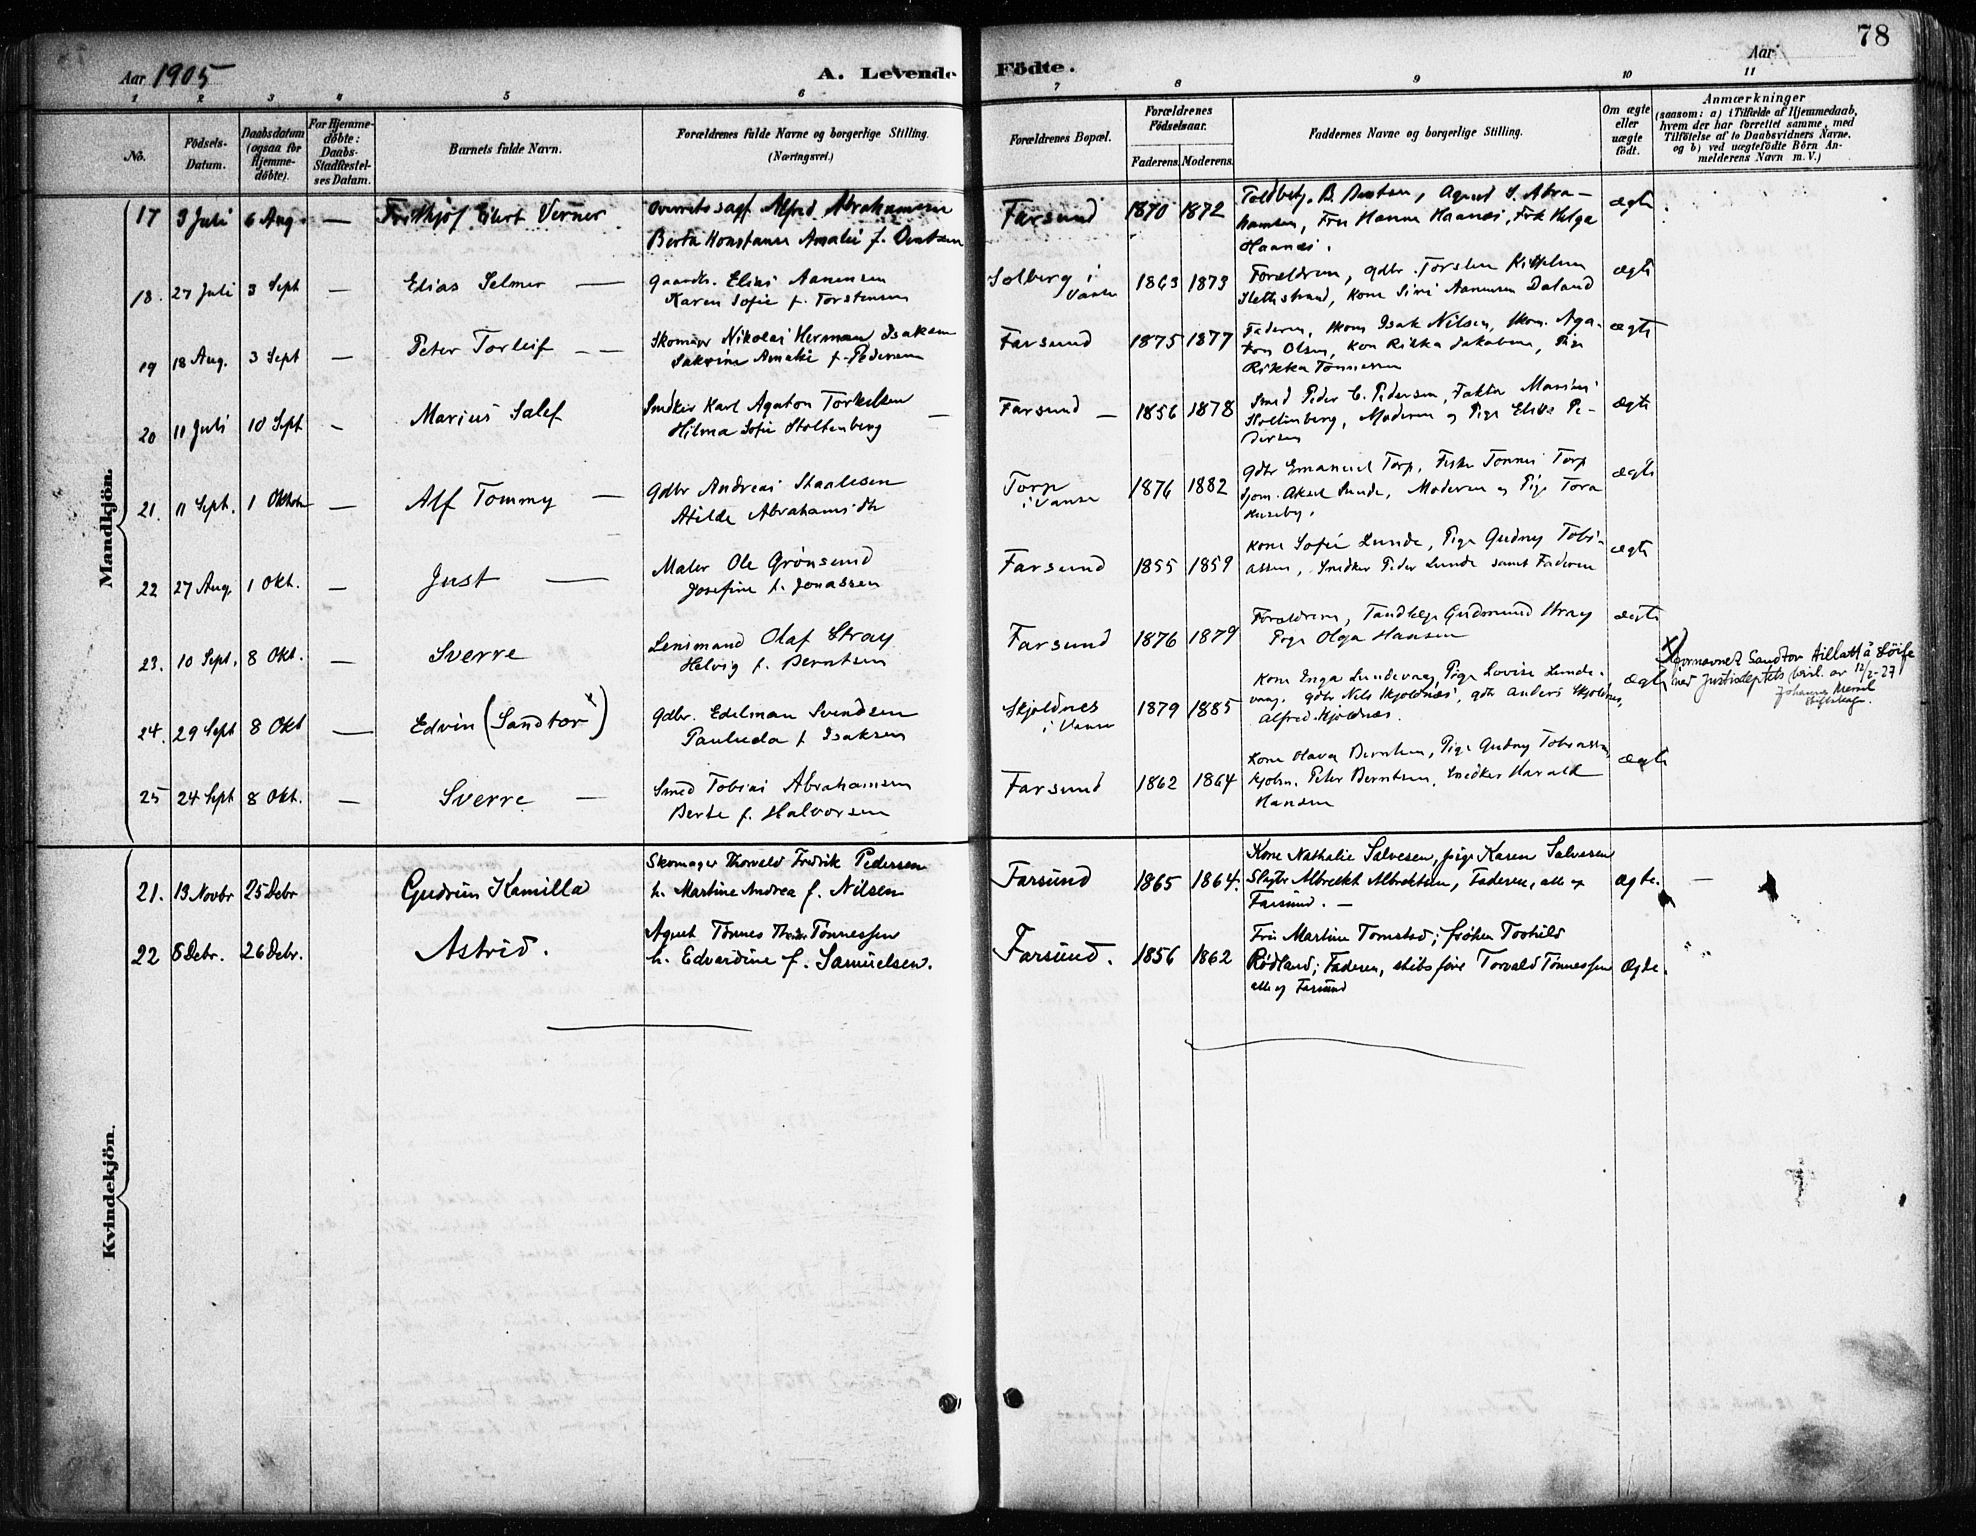 78
Aar 1905
A. Levende Födte.
Aar
1 2 3 4 5 6 7 8 9 10 11
No.
Födsels-Datum.
Daabsdatum (ogsaa for Hjemme-döbte).
For Hjemme-döbte: Daabs-Stadfæstel-ses Datum.
Barnets fulde Navn.
Forældrenes fulde Navne og borgerlige Stilling.
(Næringsvei.)
Forældrenes Bopæl.
Forældrenes Födselsaar.
Faderens. Moderens.
Faddernes Navne og borgerlige Stilling.
Om ægte eller uægte födt.
Anmærkninger
(saasom: a) i Tilfælde af Hjemmedaab,
hvem der har forrettet samme, med
Tilföielse af to Daabsvidners Navne,
og b) ved uægtefödte Börn An-
melderens Navn m. V.)
Mandkjön.
17 3 Juli 6 Aug. — Frithjof Verner
Overretssagf. Alfred Abrahamsen
Berta Konstanse Amalie f.
Farsund 1870 1872
Toldbetj. B. Agent S. Abra-
hamsen, Fru Hanna Haanæs, Frk Helga
Haanæs.
ægte
18. 27 Juli 3 Sept — Elias Selmer —
Gaardbr. Elias Aanensen
Karen Sofie f. Torstensen
Solberg i Vanse 1863 1873
Forældrene, gdbr. Torsten
Slethestrand, Kone Siri Aanensen Daland
ægte
19 18 Aug. 3 Sept — Peter Torleif — —
Skomager Nikolai Herman Isaksen
Amalie f. Pedersen
Farsund 1875 1877
Faderen, Skom Isak Nilsen, Skom. Aga-
ton Olsen, Kone Rikka Jakobsen, Pige
Rikka Tønnessen
ægte
20 11 Juli 10 Sept — Marius Salef
Snedker Karl Agaton Torkelsen
Hilma Sofie Stoltenberg —
Farsund — 1856 1878
Smed Peder C. Pedersen, Faktor Marius
Stoltenberg, Moderen og Pige Elise Pe-
dersen
ægte
21. 11 Sept. 1 Oktober — Alf Tommy —
Gdbr Andreas Staalesen
Atilde Abrahamsdtr
Torp i Vanse 1876 1882
Gdbr Emanuel Torp, Fisker Tønnes Torp
Sjøm. Aksel Lunde, Moderen og Pige Tora
Huseby.
ægte
22 27 Aug. 1 Okt. — Just —
Maler Ole Grönsund
Josefine f. Jonassen
Farsund 1855 1859
Kone Sofie Lunde, Pige Gudny Tobi-
assen, Snedker Peder Lunde samt Faderen
ægte
23. 10 Sept. 8 Okt. — Sverre
Lensmand Olaf Stray
Helvig f. Berntsen
Farsund 1876 1879
Forældrene, Tandlæge Gudmund Stray
Pige Olga Hansen
ægte
24. 29 Sept 8 Okt — Edvin (Sandtor x)
Gdbr. Edelman Svendsen
Pauleda f. Isaksen
Skjoldnes i Vanse 1879 1885
Kone Inga Lundevaag, Pige Lovise Lunde-
vaag, gdbr Nils Skjoldnæs, gdbr Anders Skjoldnes,
Alfred Skjoldnæs.
ægte
x) Fornavnet Sandtor tillatt å sløife
med Justisdeptets bevil. av 12/2-27
25 24 Sept 8 Okt. — Sverre —
Smed Tobias Abrahamsen
Berte f. Halvorsen
Farsund 1862 1864
Kone Olava Berntsen, Pige Gudny Tobiassen
Peter Berntsen, Snedker Harald
Hansen
ægte
Kvindekjön.
21. 13 Novbr 25 Debr Gudrun Kamilla
Skomager Thorvald Fredrik Pedersen
h. Martine Andrea f. Nilsen
Farsund 1865 1864.
Kone Nathalie Salvesen, pige Karen Salvesen
Albrekt Albrektsen, Faderen, alle af
Farsund. —
Ægte. —
22 8 Debr. 26 Debr. Astrid.
Agent Tønnes Tønnessen
h. Edvardine f. Samuelsen.
Farsund. 1856 1862
Fru Martine Tomstad; frøken Torhild
Rødland; Faderen, skibsfører Torvald Tønnessen
alle af Farsund
Ægte.